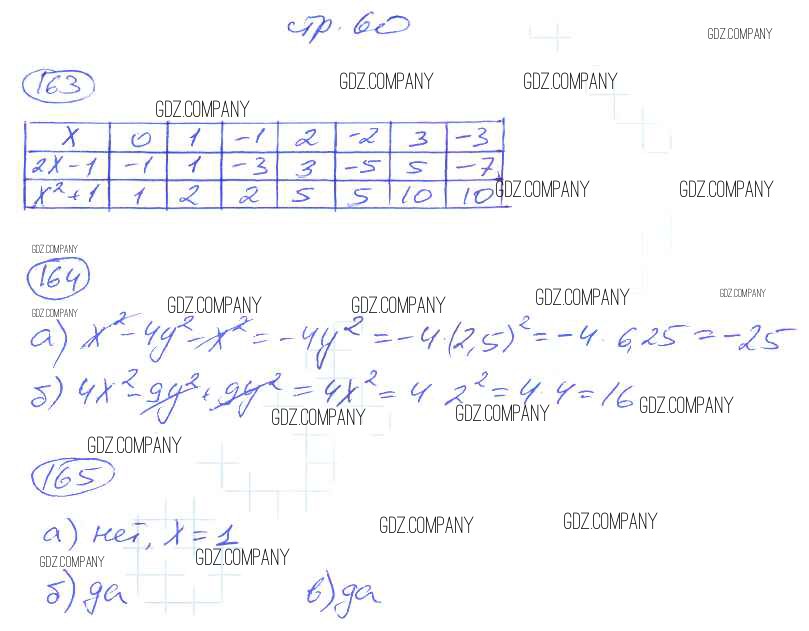 стр. 60
GDZ.COMPANY
163
GDZ.COMPANY GDZ.COMPANY
GDZ.COMPANY
x 0 1 -1 2 -2 3 -3
2x-1 -1 1 -3 3 -5 5 -7
x²+1 1 2 2 5 5 10 10
GDZ.COMPANY GDZ.COMPANY
GDZ.COMPANY
164
GDZ.COMPANY GDZ.COMPANY
GDZ.COMPANY GDZ.COMPANY GDZ.COMPANY
а) x²-4y²-x²=-4y²=-4·(2,5)²=-4·6,25=-25
б) 4x²-9y²+9y²=4x²=4 2²=4·4=16
GDZ.COMPANY
GDZ.COMPANY GDZ.COMPANY
GDZ.COMPANY
165
GDZ.COMPANY GDZ.COMPANY
а) нет, x=1
GDZ.COMPANY GDZ.COMPANY
б) да в) да